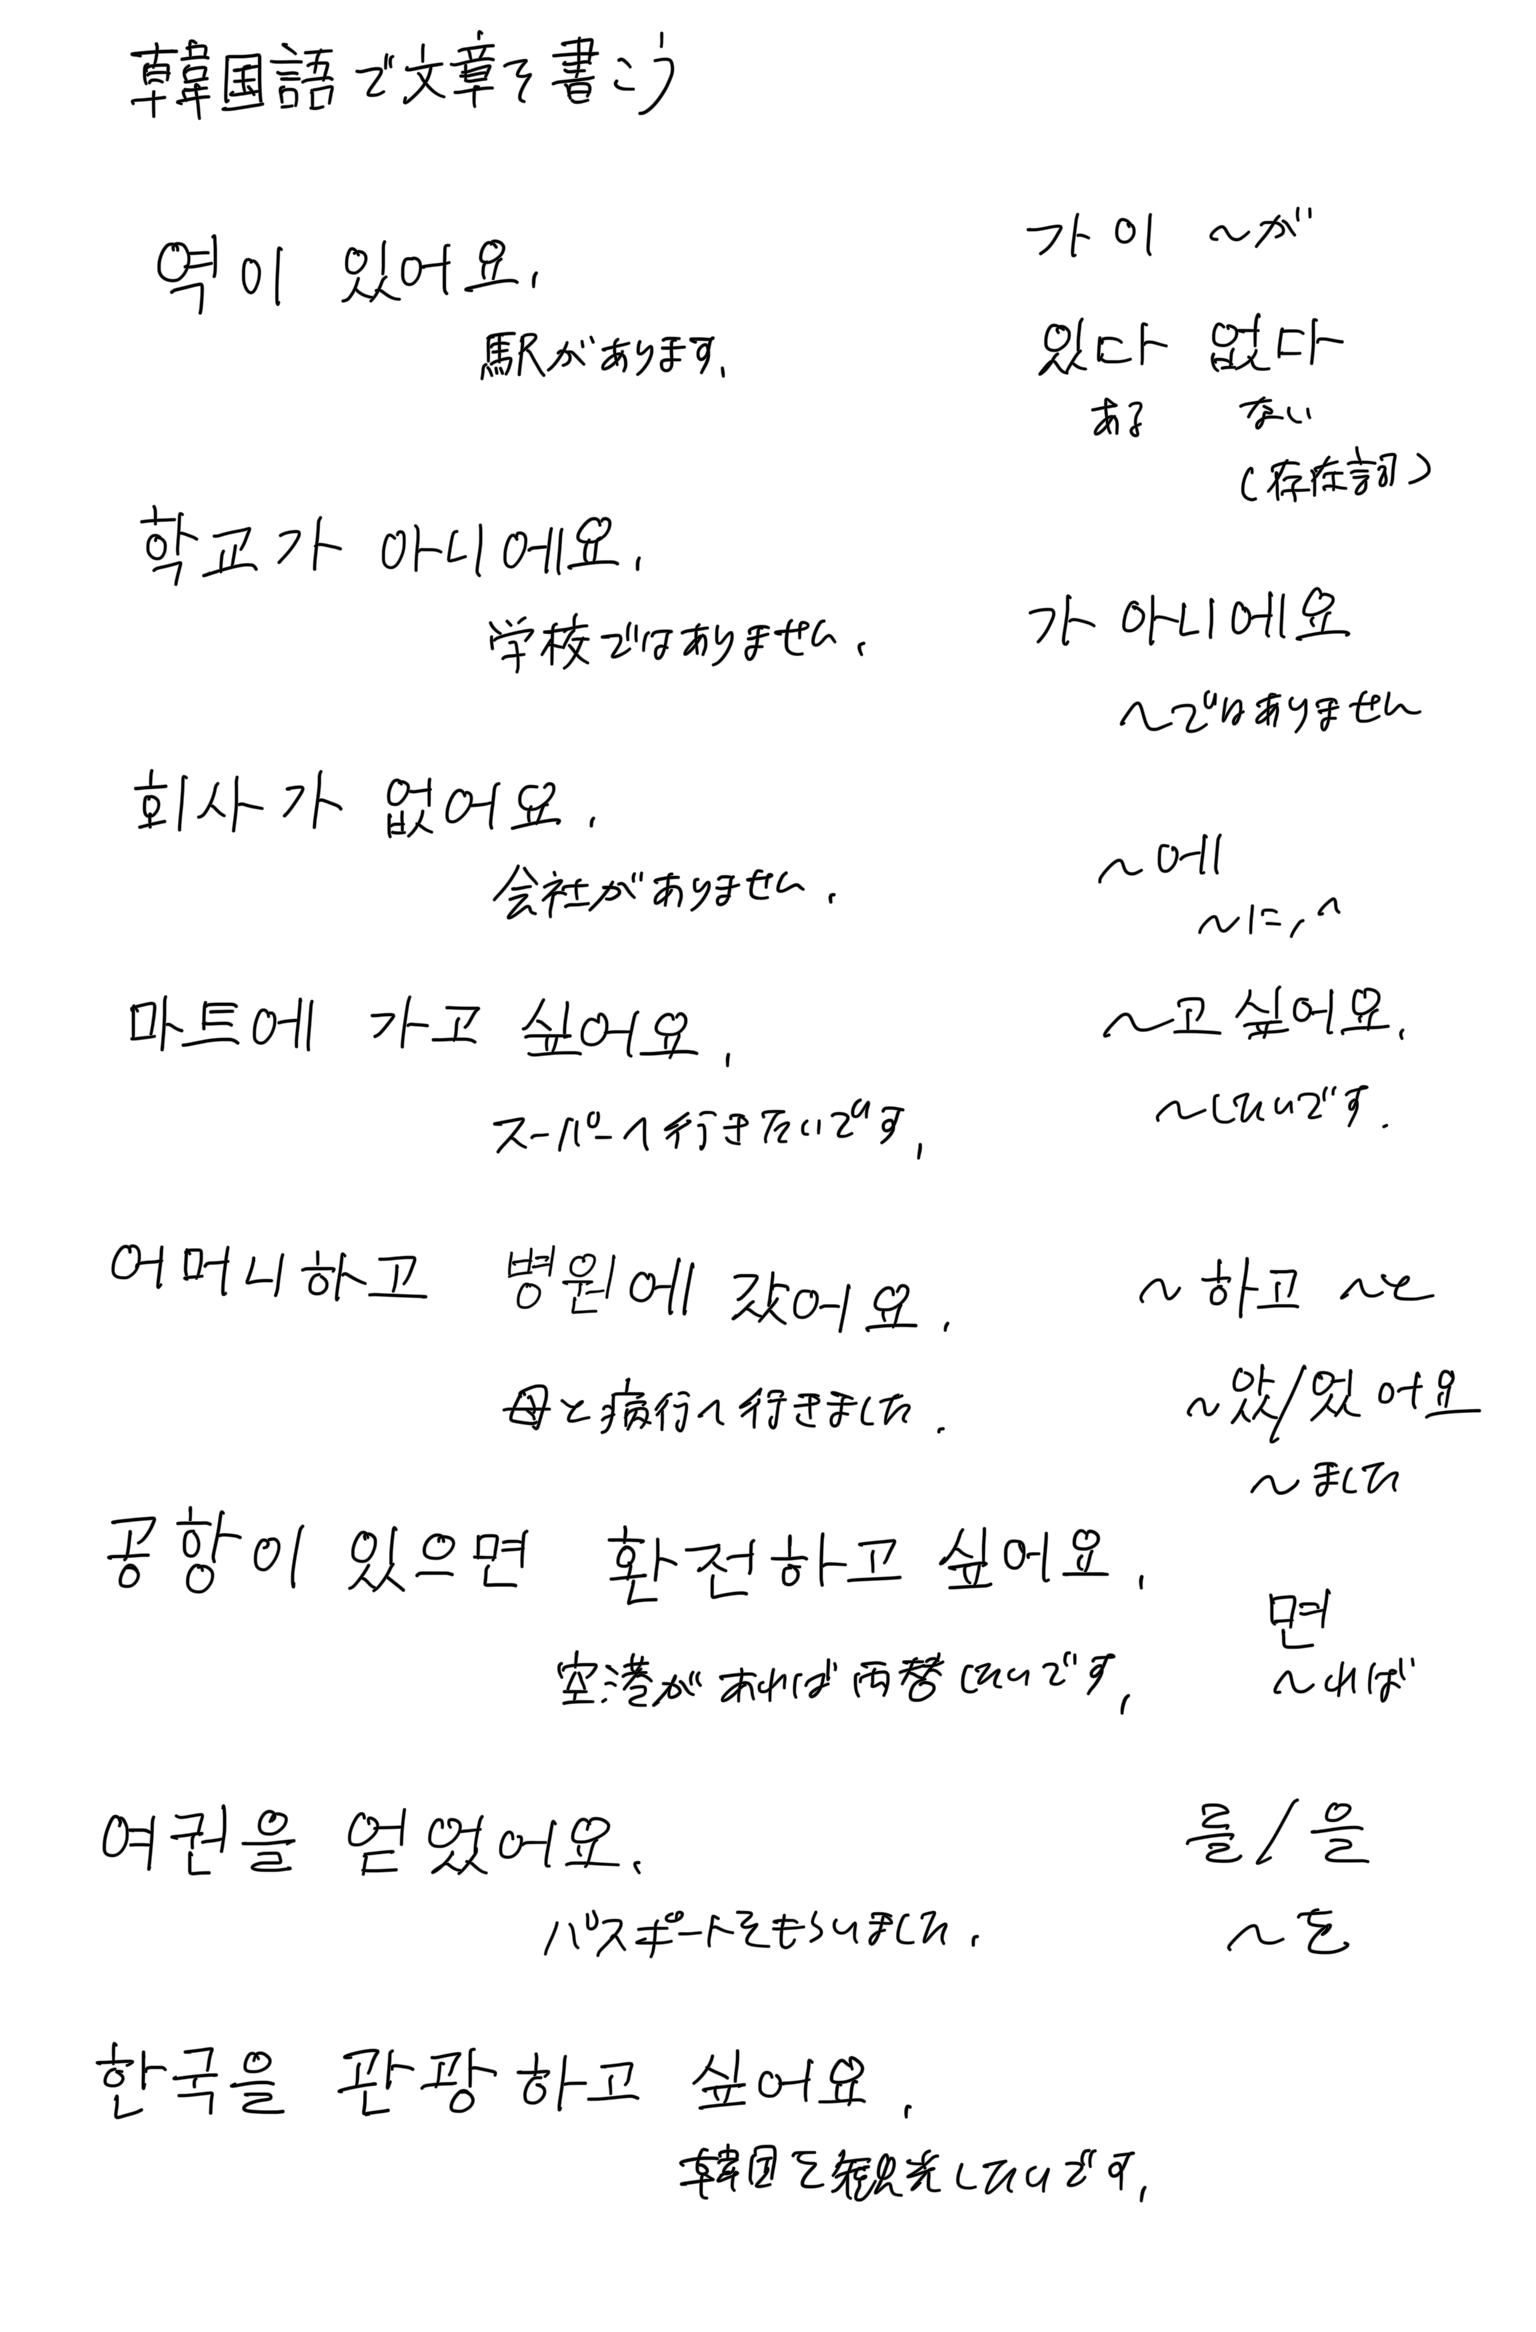 韓国語で文章を書こう
역이 있어요.
駅があります.
가 이 ～が
있다 없다
ある ない
(存在詞)
학교가 아니에요.
学校ではありません.
가 아니에요
～ではありません
회사가 없어요.
会社がありません.
～에
～に,へ
마트에 가고 싶어요.
スーパーへ行きたいです.
～고 싶어요.
～したいです.
어머니하고 병원에 갔어요.
母と病行へ行きました.
～하고 ～と
～았/있어요
～ました
공항이 있으면 환전하고 싶어요.
空港があれば両替したいです.
면
～れば
여권을 얻었어요.
パスポートをもらいました.
를/을
～を
한국을 관광하고 싶어요.
韓国を観光したいです.